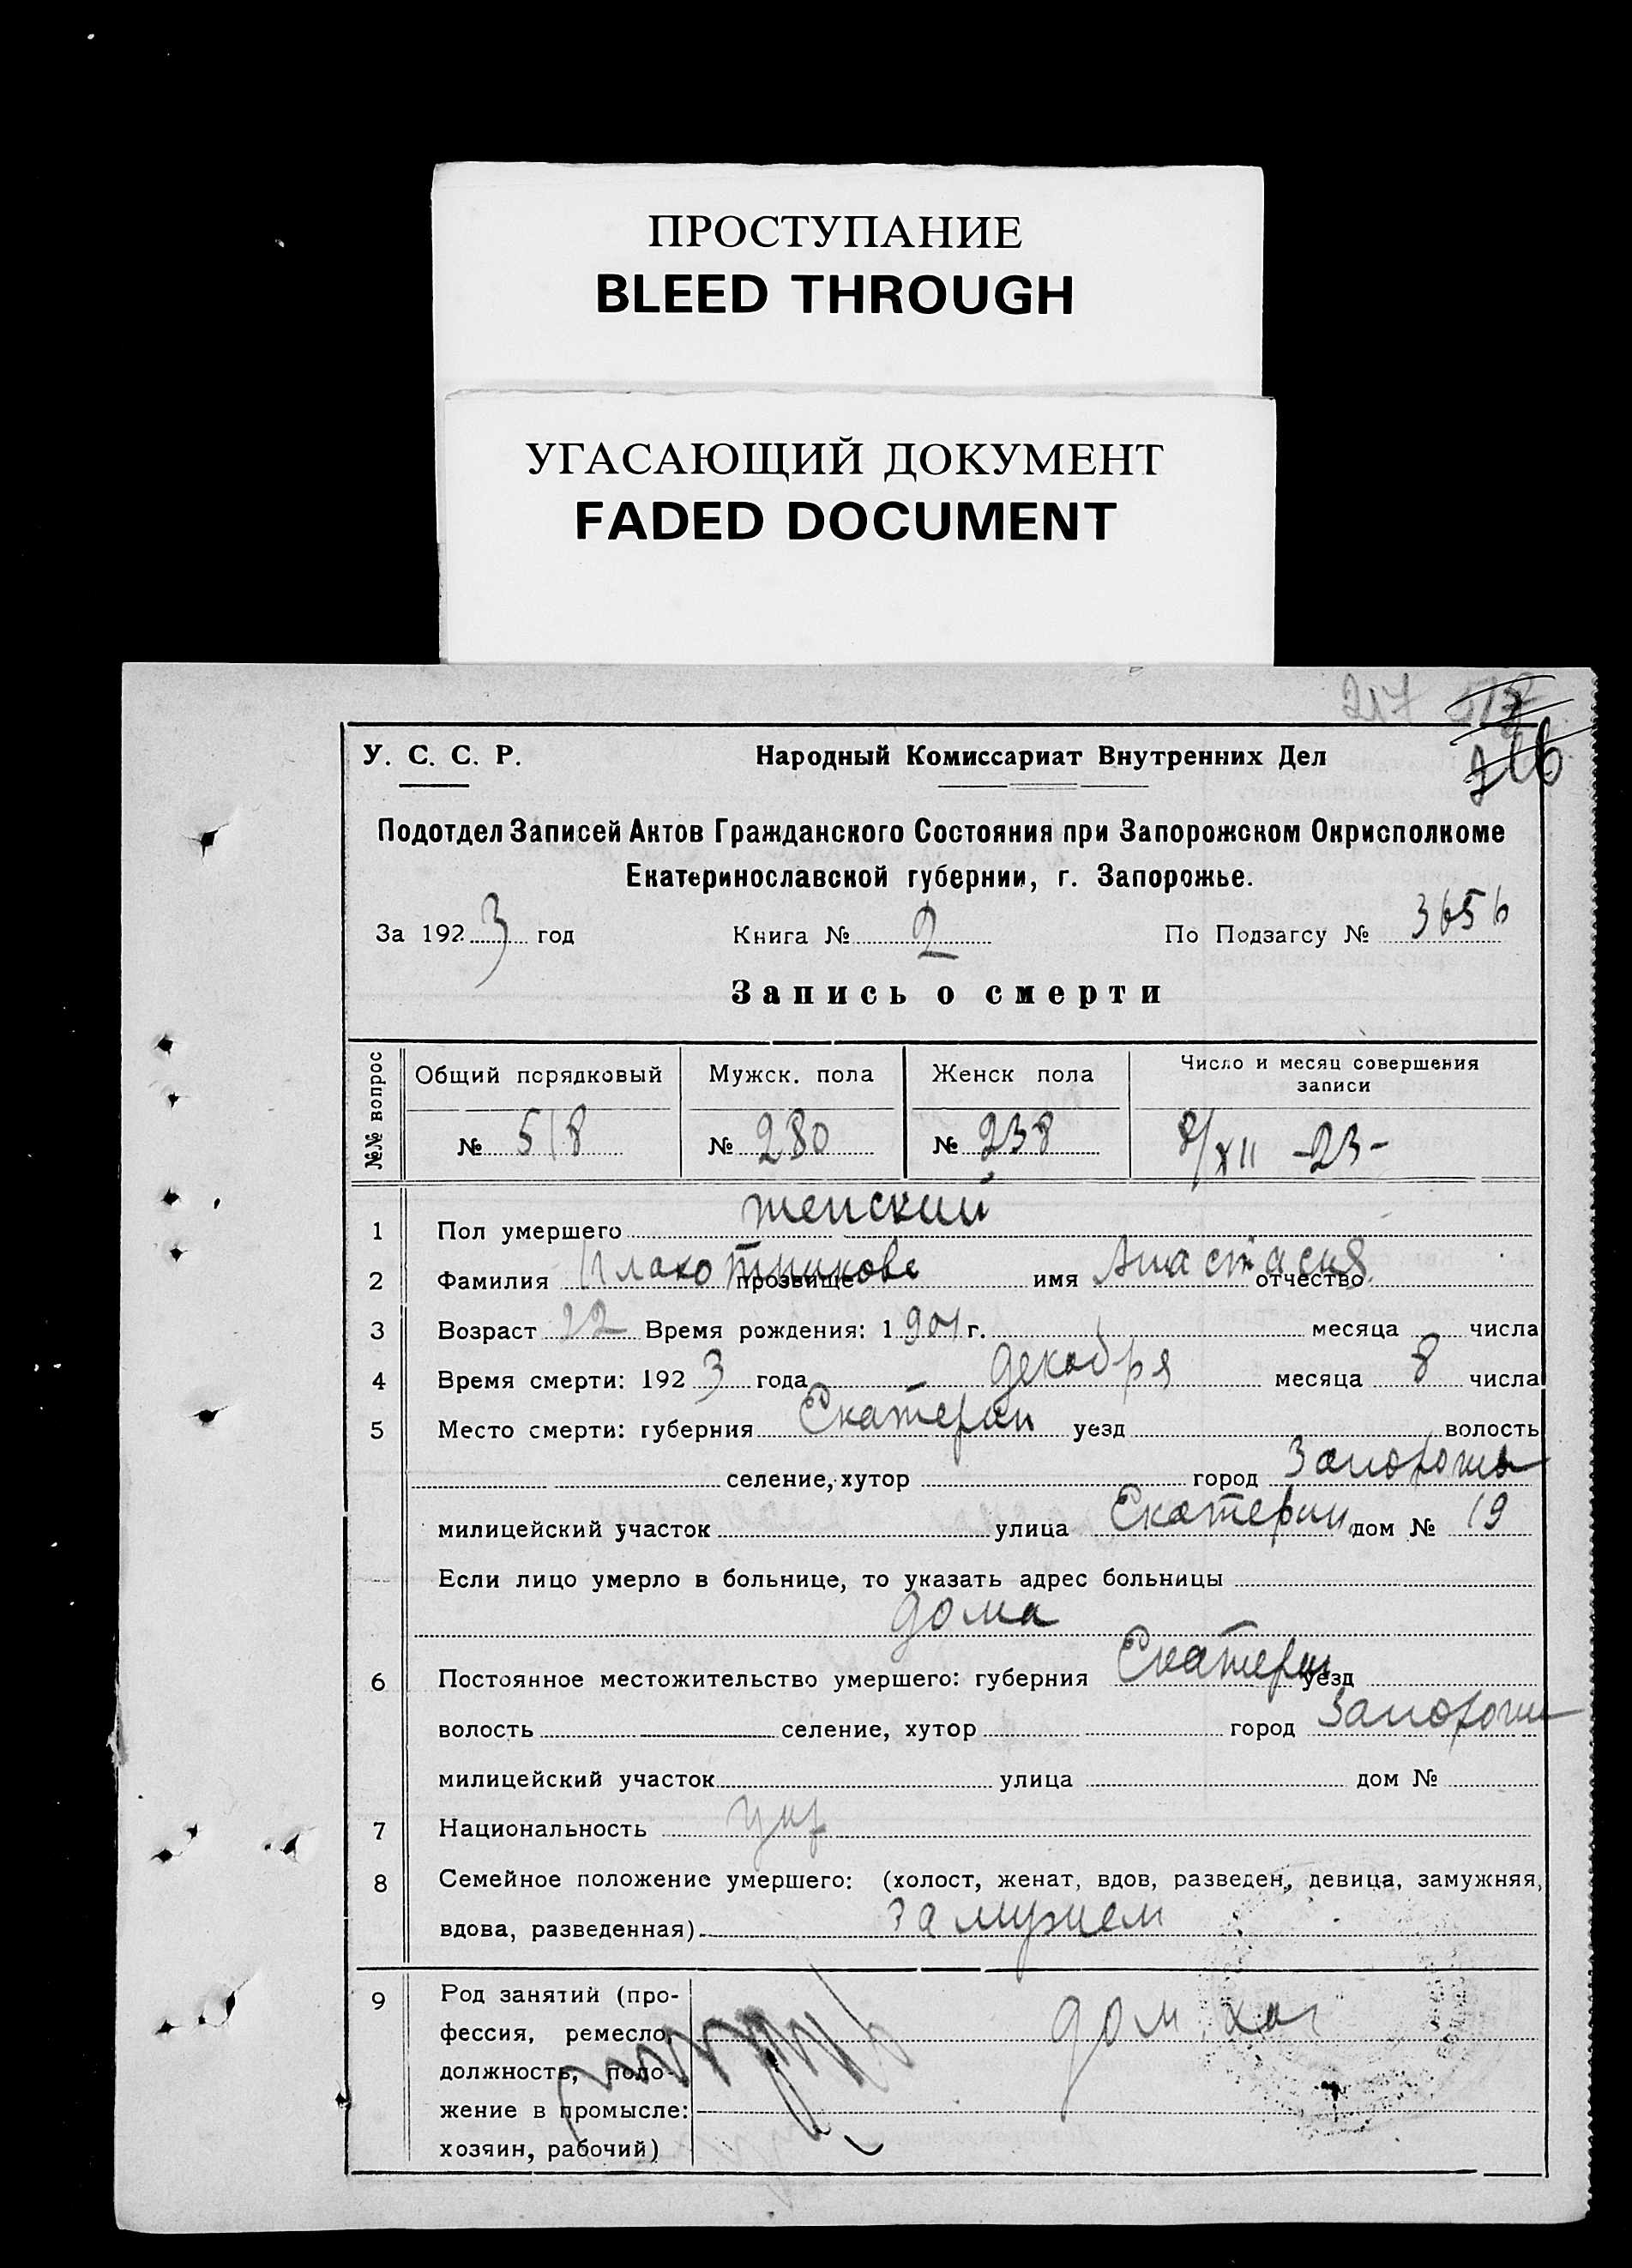 ПРОСТУПАНИЕ
BLEED THROUGH
УГАСАЮЩИЙ ДОКУМЕНТ
FADED DOCUMENT
217 518
216
У. С. С. Р. Народный Комиссариат Внутренних Дел
Подотдел Записей Актов Гражданского Состояния при Запорожском Окрисполкоме
Екатеринославской губернии, г. Запорожье.
За 1923 год Книга № 2 По Подзагсу № 3656
Запись о смерти
№№ вопрос Общий порядковый Мужск. пола Женск пола Число и месяц совершения
записи
№ 518 № 280 № 238 8/XII -23-
1 Пол умершего женский
2 Фамилия Плахотникова прозвище имя Анастасия отчество
3 Возраст 22 Время рождения: 1901 г. месяца числа
4 Время смерти: 1923 года декабря месяца 8 числа
5 Место смерти: губерния Екатерин уезд волость
селение, хутор город Запорожье
милицейский участок улица Екатерин дом № 19
Если лицо умерло в больнице, то указать адрес больницы
дома
6 Постоянное местожительство умершего: губерния Екатерин уезд
волость селение, хутор город Запорожье
милицейский участок улица дом №
7 Национальность укр
8 Семейное положение умершего: (холост, женат, вдов, разведен, девица, замужняя,
вдова, разведенная) замужем
9 Род занятий (про-
фессия, ремесло, дом. хоз
должность, поло-
жение в промысле:
хозяин, рабочий)